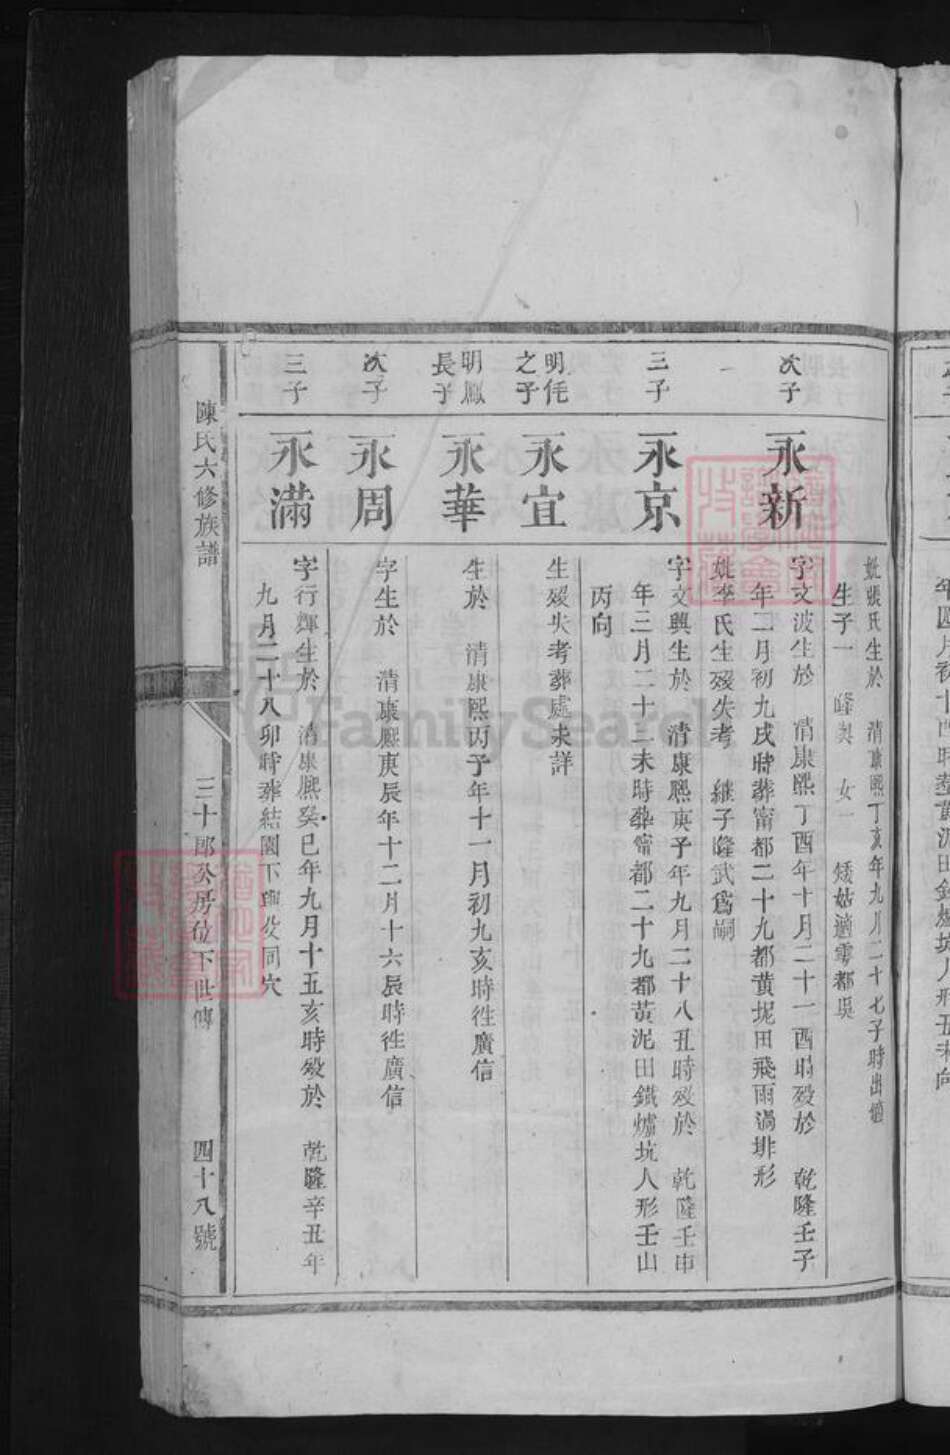 妣張氏生於　清康熙丁亥年九月二十七子時出適
生子一　峰　女一　矮姑適雩都吳
次子
永新
字文波生於　清康熙丁酉年十月二十一酉時歿於　乾隆壬子
年二月初九戌時葬甯都二十九都黃坭田飛雨渦排形
妣李氏生歿失考　繼子隆武爲嗣
三子
永京
字文興生於　清康熙庚子年九月二十八丑時歿於　乾隆壬申
年三月二十三未時葬甯都二十九都黃泥田鐵爐坑人形壬山
丙向
明㐌之子
永宜
生歿失考葬處未詳
明鳳長子
永華
生於　清康熙丙子年十一月初九亥時徃廣信
次子
永周
字生於　清康熙庚辰年十二月十六辰時徃廣信
三子
永滿
字行輝生於　清康熙癸巳年九月十五亥時歿於　乾隆辛丑年
九月二十八卯時葬結園下與父同穴
陳氏六修族譜
三十郎公房位下世傳
四十八號
FamilySearch